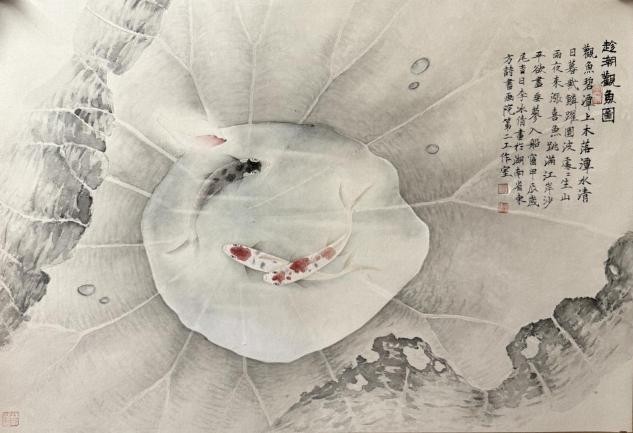 趁潮觀魚圖
觀魚碧潭上木落潭水清
日暮紫鱗躍圓波處々生山
雨夜來漲喜魚跳滿江岸沙
平欲盡垂蓼入船窗甲辰歲
尾吉日李冰倩畫於湖南省東
方詩書画院第二工作室